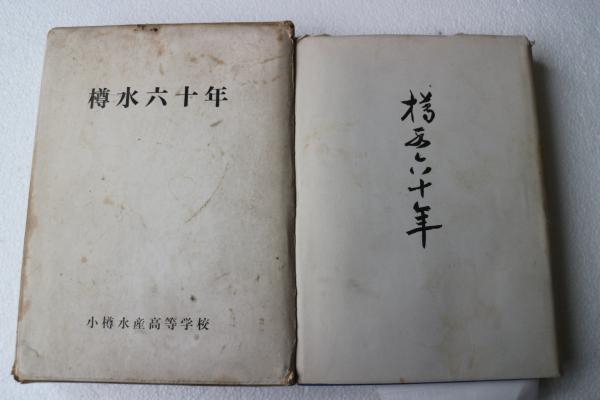 樽水六十年
小樽水産高等学校
樽水六十年